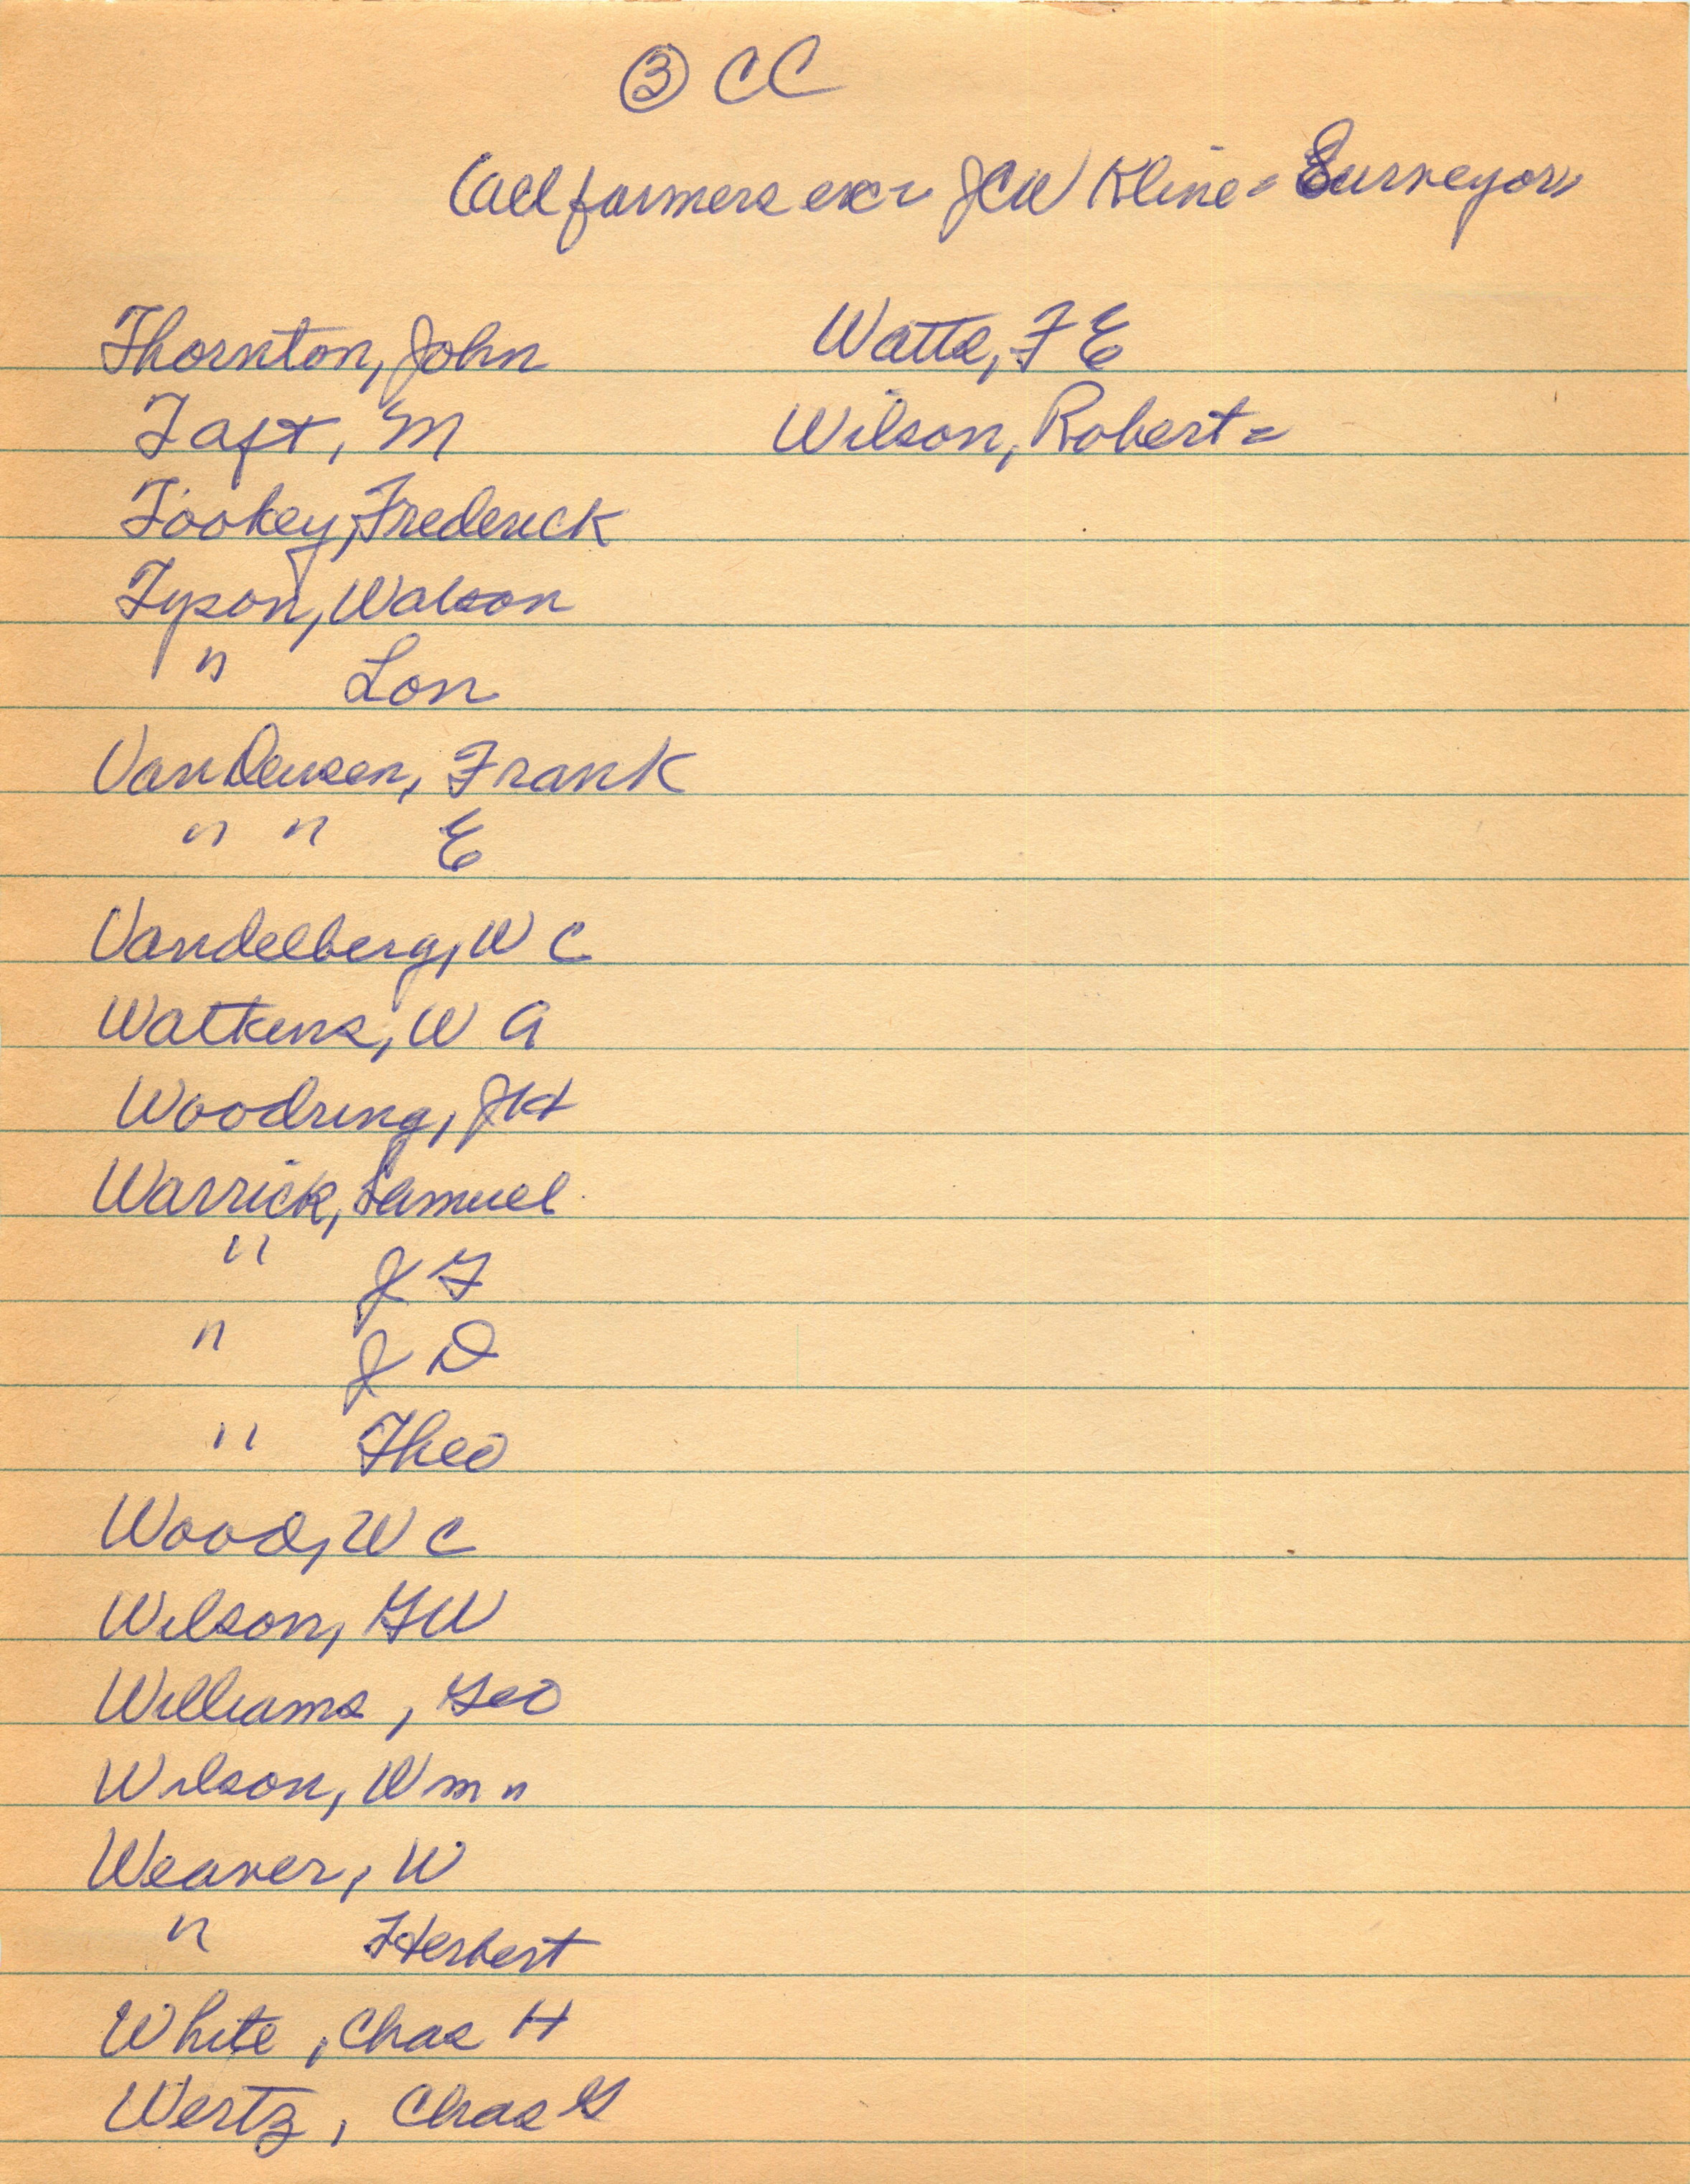 ③ CC
(all farmers exc. JCW Kline = Surveyor)
Thornton, John
Taft, M
Tookey, Frederick
Tyson, Watson
" Lon
Van Deusen, Frank
" " E
Vandelberg, W C
Watkins, W A
Woodring, J H
Warrick, Samuel
" J G
" J D
" Theo
Wood, W C
Wilson, G W
Williams, Geo
Wilson, Wm "
Weaver, W
" Herbert
White, Chas H
Wertz, Chas G
Watts, F E
Wilson, Robert =